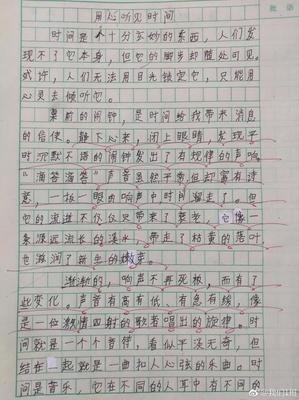 用心听见时间
时间是个十分玄妙的东西,人们发
现不了它本身,但它的脚步却随处可见。
或许,人们无法用目光锁定它,只能用
心灵去倾听它。
桌前的闹钟,是时间给我带来消息
的信使。静下心来,闭上眼睛,发现平
时沉默不语的闹钟发出了有规律的声响
"滴答滴答"声音虽然平素但却富有诗
意,一板一眼的响声中时间溜走了。但
它的流逝不仅仅只带来了衰老,它像一
条源远流长的溪水,带走了枯黄的落叶
也滋润了新生的嫩芽。
渐渐的,响声不再死板,而有了
些变化。声音有高有低,有急有缓,像
是一位激情四射的歌者唱出的旋律。时
间就是一个个音符,看似平淡无奇,但
结在一起就是一曲扣人心弦的乐曲。时
间是音乐,它在不同的人耳中有不同的
@我们E班